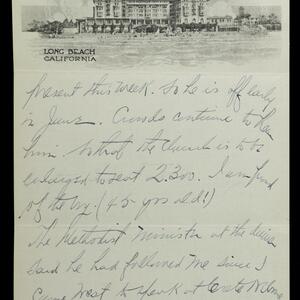 LONG BEACH
CALIFORNIA
present this week. So he is off early
in June. Crowds continue to hear
him. So that the Church is to be
enlarged to seat 2300. I am proud
of the boy. (45 yrs old!)
The Methodist minister at the dinner
said he had followed me since I
came West to speak at